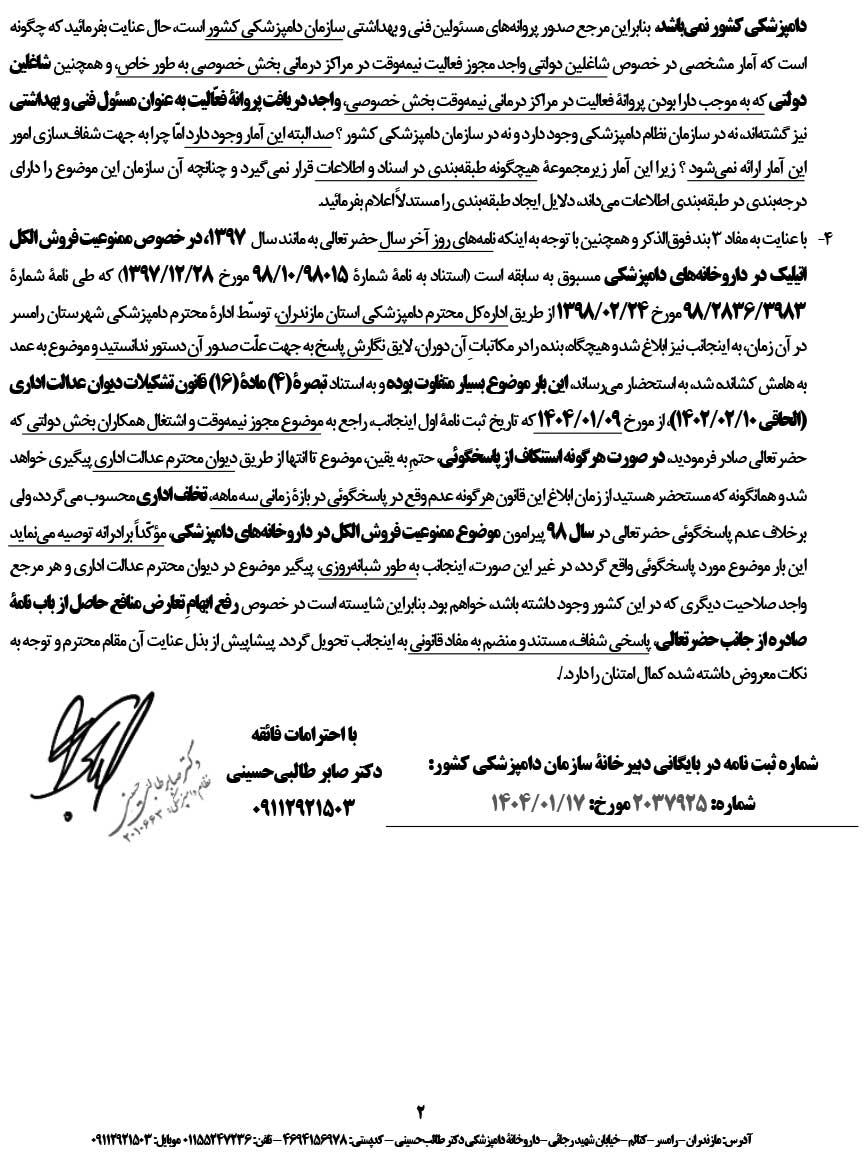 دامپزشکی کشور نمی‌باشد. بنابراین مرجع صدور پروانه‌های مسئولین فنی و بهداشتی سازمان دامپزشکی کشور است، حال عنایت بفرمائید که چگونه
است که آمار مشخصی در خصوص شاغلین دولتی واجد مجوز فعالیت نیمه‌وقت در مراکز درمانی بخش خصوصی به طور خاص، و همچنین شاغلین
دولتی که به موجب دارا بودن پروانهٔ فعالیت در مراکز درمانی نیمه‌وقت بخش خصوصی، واجد دریافت پروانهٔ فعّالیت به عنوان مسئول فنی و بهداشتی
نیز گشته‌اند، نه در سازمان نظام دامپزشکی وجود دارد و نه در سازمان دامپزشکی کشور ؟ صد البته این آمار وجود دارد امّا چرا به جهت شفاف‌سازی امور
این آمار ارائه نمی‌شود ؟ زیرا این آمار زیرمجموعهٔ هیچگونه طبقه‌بندی در اسناد و اطلاعات قرار نمی‌گیرد و چنانچه آن سازمان این موضوع را دارای
درجه‌بندی در طبقه‌بندی اطلاعات می‌داند، دلایل ایجاد طبقه‌بندی را مستدلاً اعلام بفرمائید.
۴- با عنایت به مفاد ۳ بند فوق‌الذکر و همچنین با توجه به اینکه نامه‌های روز آخر سال حضرتعالی به مانند سال ۱۳۹۷، در خصوص ممنوعیت فروش الکل
اتیلیک در داروخانه‌های دامپزشکی مسبوق به سابقه است (استناد به نامهٔ شمارهٔ ۹۸/۱۰/۹۸۰۱۵ مورخ ۱۳۹۷/۱۲/۲۸) که طی نامهٔ شمارهٔ
۹۸/۲۸۳۶/۳۹۸۳ مورخ ۱۳۹۸/۰۲/۲۴ از طریق اداره‌کل محترم دامپزشکی استان مازندران، توسّط ادارهٔ محترم دامپزشکی شهرستان رامسر
در آن زمان، به اینجانب نیز ابلاغ شد و هیچگاه، بنده را در مکاتباتِ آن دوران، لایق نگارش پاسخ به جهت علّت صدور آن دستور ندانستید و موضوع به عمد
به هامش کشانده شد، به استحضار می‌رساند، این بار موضوع بسیار متفاوت بوده و به استناد تبصرهٔ (۴) مادهٔ (۱۶) قانون تشکیلات دیوان عدالت اداری
(الحاقی ۱۴۰۲/۰۲/۱۰)، از مورخ ۱۴۰۴/۰۱/۰۹ که تاریخ ثبت نامهٔ اول اینجانب، راجع به موضوع مجوز نیمه‌وقت و اشتغال همکاران بخش دولتی که
حضرتعالی صادر فرمودید، در صورت هرگونه استنکاف از پاسخگوئی، حتم به یقین، موضوع تا انتها از طریق دیوان محترم عدالت اداری پیگیری خواهد
شد و همانگونه که مستحضر هستید از زمان ابلاغ این قانون هرگونه عدم وقع در پاسخگوئی در بازهٔ زمانی سه ماهه، تخلف اداری محسوب می‌گردد، ولی
برخلاف عدم پاسخگوئی حضرتعالی در سال ۹۸ پیرامون موضوع ممنوعیت فروش الکل در داروخانه‌های دامپزشکی، مؤکّداً برادرانه توصیه می‌نماید
این بار موضوع مورد پاسخگوئی واقع گردد، در غیر این صورت، اینجانب به طور شبانه‌روزی، پیگیر موضوع در دیوان محترم عدالت اداری و هر مرجع
واجد صلاحیت دیگری که در این کشور وجود داشته باشد، خواهم بود. بنابراین شایسته است در خصوص رفع ابهامِ تعارض منافع حاصل از باب نامهٔ
صادره از جانب حضرتعالی، پاسخی شفاف، مستند و منضم به مفاد قانونی به اینجانب تحویل گردد. پیشاپیش از بذل عنایت آن مقام محترم و توجه به
نکات معروض داشته شده کمال امتنان را دارد./.
با احترامات فائقه
دکتر صابر طالبی‌حسینی
۰۹۱۱۲۹۲۱۵۰۳
دکتر صابر طالبی حسینی
نظام دامپزشکی: ۲۰۱۰۶۶۳
شماره ثبت نامه در بایگانی دبیرخانهٔ سازمان دامپزشکی کشور:
شماره: ۲۰۳۷۹۲۵ مورخ: ۱۴۰۴/۰۱/۱۷
۲
آدرس: مازندران – رامسر – کتالم – خیابان شهید رجائی – داروخانهٔ دامپزشکی دکتر طالب‌حسینی – کدپستی: ۴۶۹۴۱۵۶۹۷۸ – تلفن: ۰۱۱۵۵۲۴۷۲۳۶ موبایل: ۰۹۱۱۲۹۲۱۵۰۳